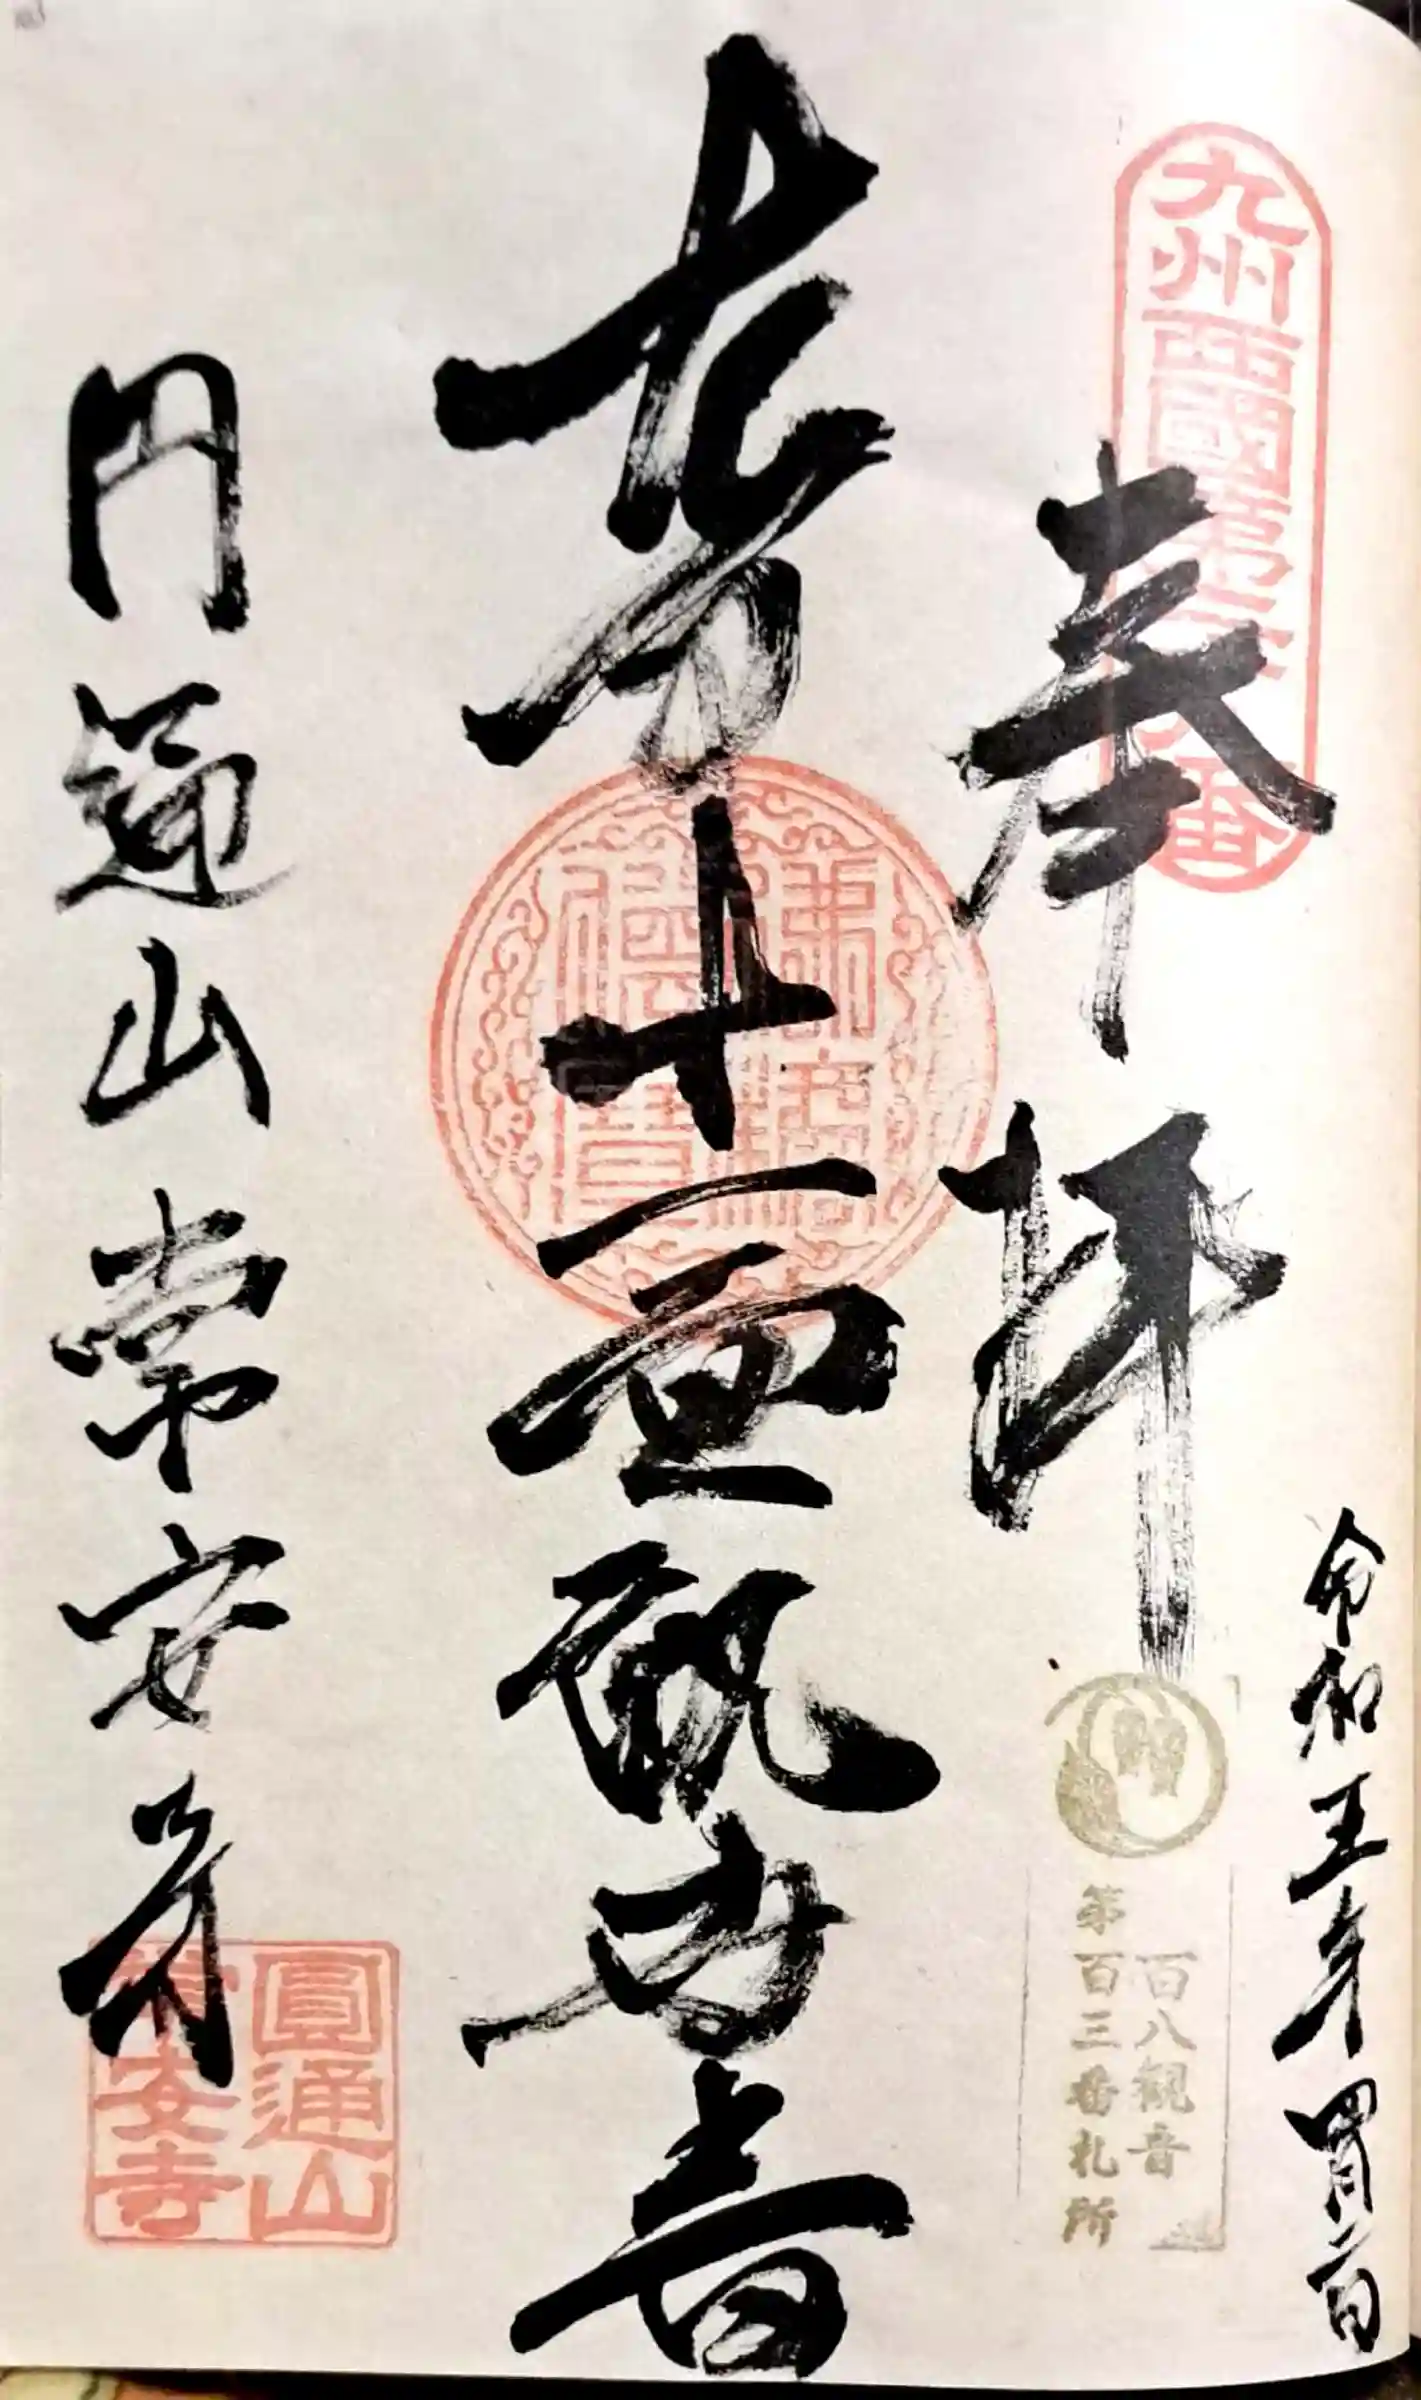 九州西國第
番
奉拝
令和五年四月
百八観音
第百三番札所
本尊十一面観世音
円通山常安寺
圓通山
常安寺